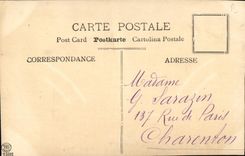 CARTE POSTALE
Post Card Postkarte Cartolina Postale
CORRESPONDANCE
ADRESSE
Madame
G Sarazin
137 Rue de Paris
Charenton